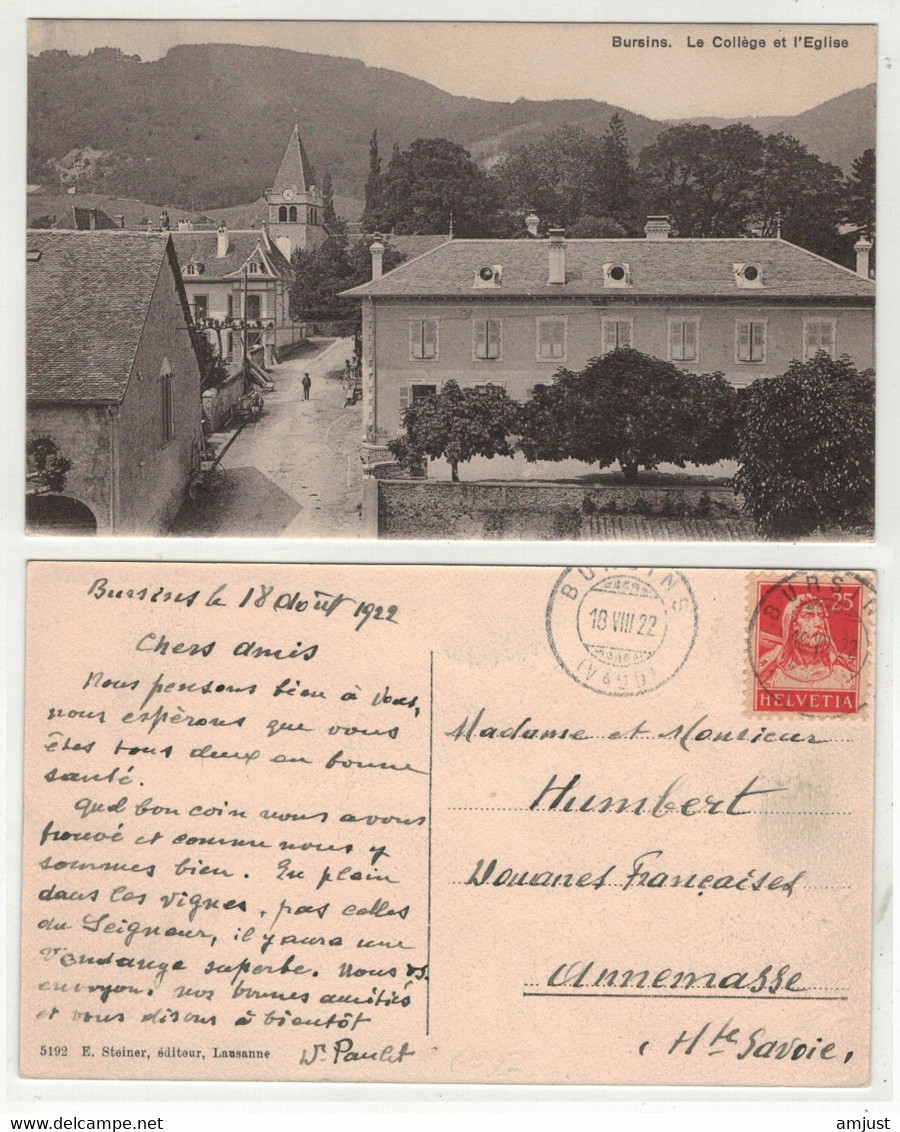 Bursins. Le Collège et l'Eglise
Bursins le 18 Août 1922
Chers amis
Nous pensons bien à vous,
nous espérons que vous
êtes tous deux en bonne
santé.
Quel bon coin nous avons
trouvé et comme nous y
sommes bien. En plein
dans les vignes, pas celles
du Seigneur, il y aura une
vendange superbe. Nous vs.
envoyon. nos bonnes amitiés
et vous disons à bientôt
Paulet
5192 E. Steiner, éditeur, Lausanne
BURSINS
18 VIII 22
(VAUD)
25
HELVETIA
Madame et Monsieur
Humbert
Douanes Françaises
Annemasse
(Hte Savoie)
amjust